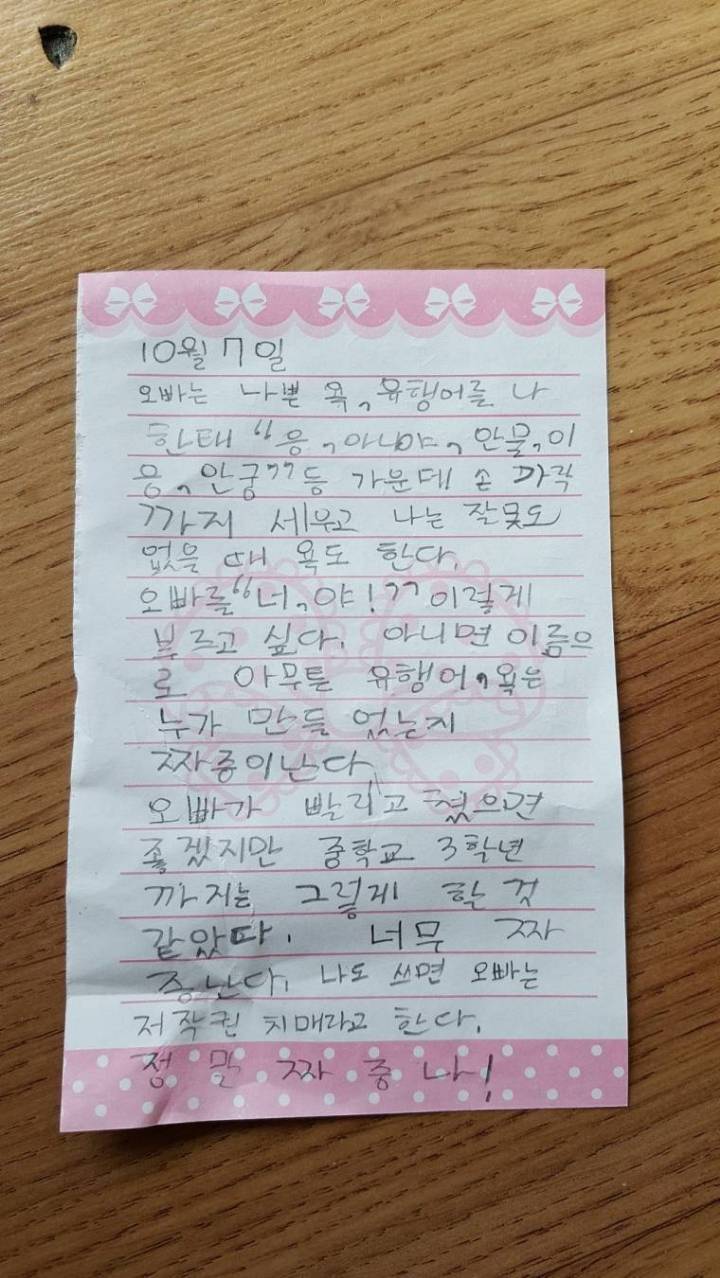 10월 7일
오빠는 나쁜 욕, 유행어를 나
한태 "응, 아니야, 안물, 이
응, 안궁" 등 가운데 손 까락
까지 세우고 나는 잘못도
없을 때 욕도 한다.
오빠를 "너, 야!" 이렇게
부르고 싶다. 아니면 이름으
로 아무튼 유행어, 욕은
누가 만들 었는지
짜증이난다
오빠가 빨리고 였으면
좋겠지만 중학교 3학년
까지는 그렇게 할 것
같았다. 너무 짜
증난다. 나도 쓰면 오빠는
저작권 치매라고 한다.
정말 짜증나!